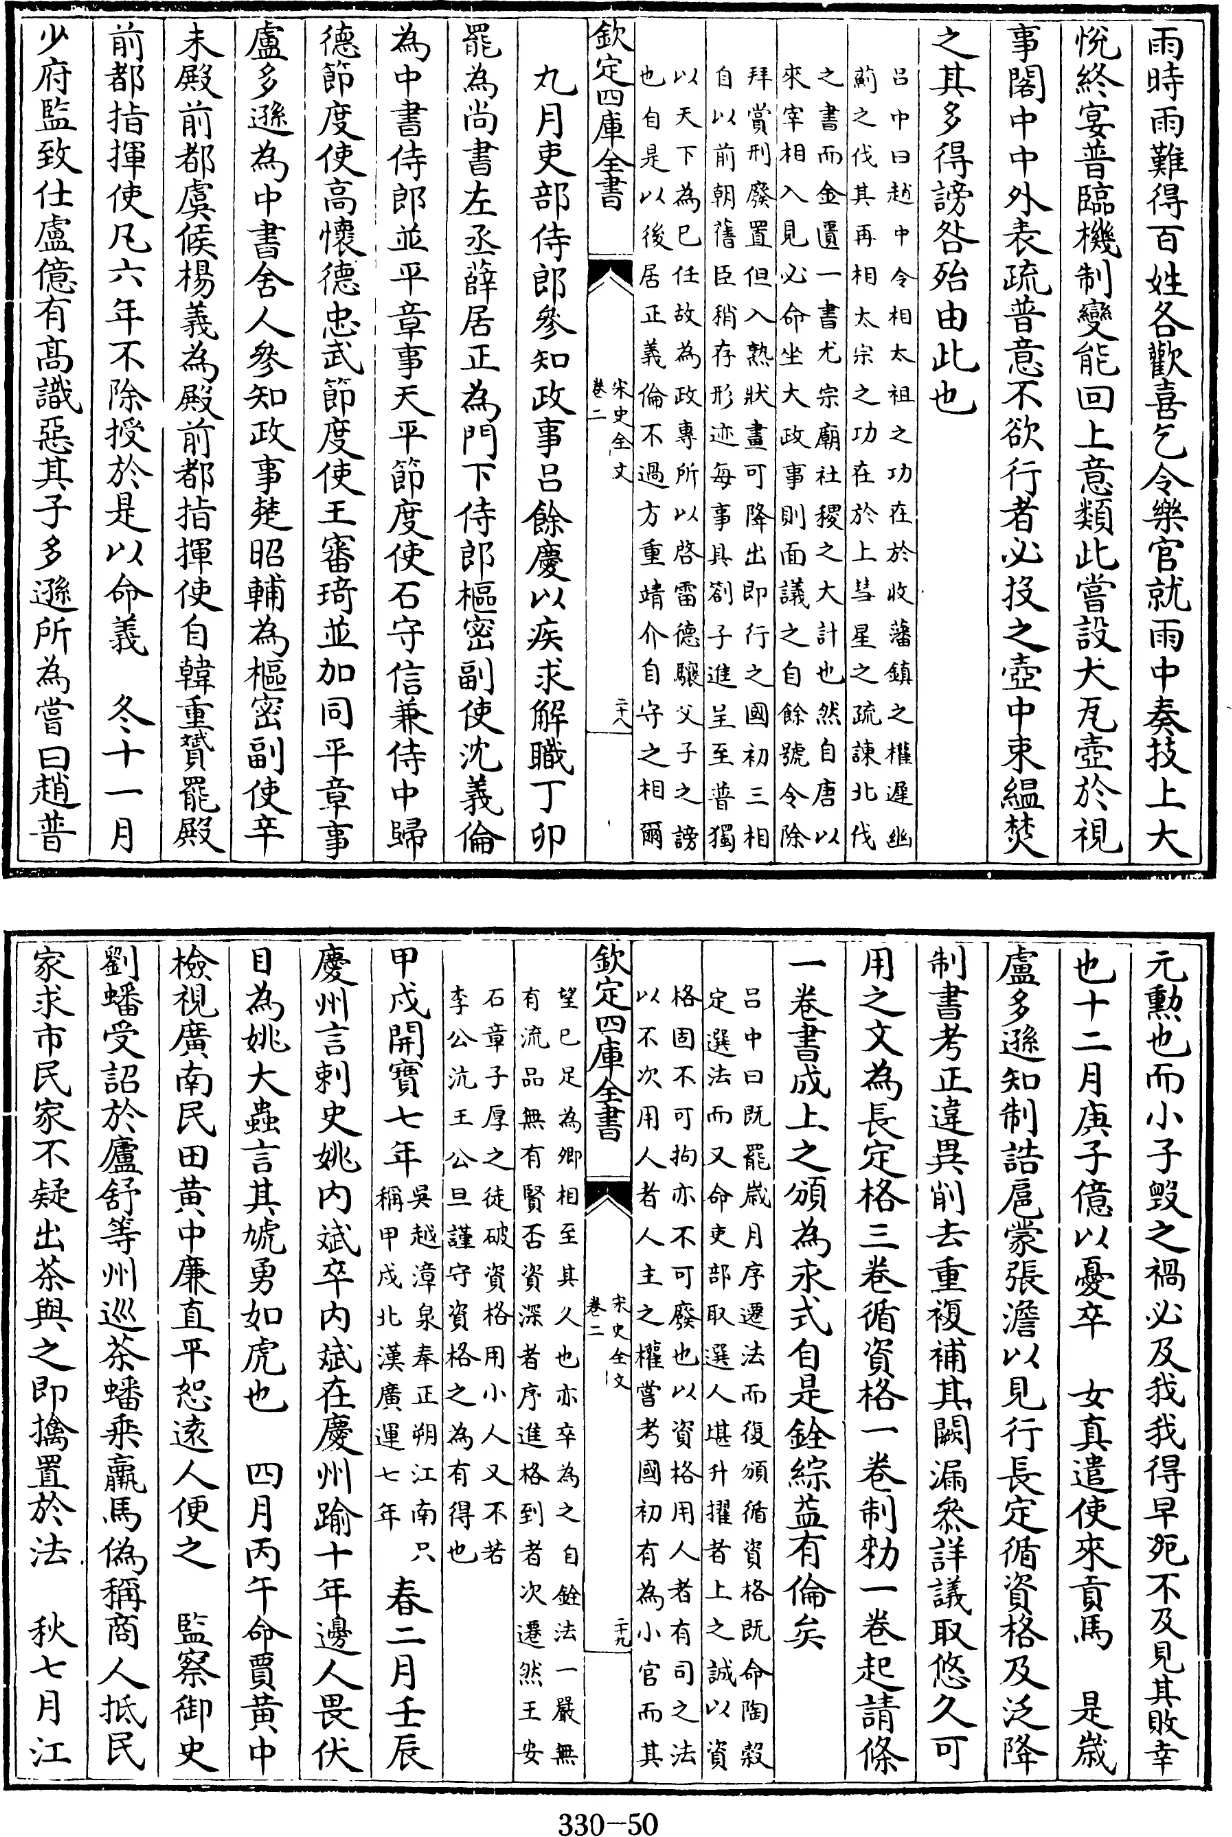 雨時雨難得百姓各歡喜乞令樂官就雨中奏技上大
悅終宴普臨機制變能回上意類此嘗設大瓦壺於視
事閣中中外表疏普意不欲行者必投之壺中束緼焚
之其多得謗咎殆由此也
呂中曰趙中令相太祖之功在於收藩鎮之權遲幽
薊之伐其再相太宗之功在於上彗星之疏諫北伐
之書而金匱一書尤宗廟社稷之大計也然自唐以
來宰相入見必命坐大政事則面議之自餘號令除
拜賞刑廢置但入熟狀畫可降出即行之國初三相
自以前朝舊臣稍存形迹每事具劄子進呈至普獨
以天下為己任故為政專所以啓雷德驤父子之謗
也自是以後居正義倫不過方重靖介自守之相爾
欽定四庫全書
宋史全文
卷二
二十八
九月吏部侍郎參知政事呂餘慶以疾求解職丁卯
罷為尚書左丞薛居正為門下侍郎樞密副使沈義倫
為中書侍郎並平章事天平節度使石守信兼侍中歸
德節度使高懷德忠武節度使王審琦並加同平章事
盧多遜為中書舍人參知政事楚昭輔為樞密副使辛
未殿前都虞候楊義為殿前都指揮使自韓重贇罷殿
前都指揮使凡六年不除授於是以命義　冬十一月
少府監致仕盧億有高識惡其子多遜所為嘗曰趙普
元勳也而小子毀之禍必及我我得早死不及見其敗幸
也十二月庚子億以憂卒　女真遣使來貢馬　是歲
盧多遜知制誥扈蒙張澹以見行長定循資格及泛降
制書考正違異削去重複補其闕漏叅詳議取悠久可
用之文為長定格三卷循資格一卷制勑一卷起請條
一卷書成上之頒為永式自是銓綜益有倫矣
呂中曰既罷歲月序遷法而復頒循資格既命陶穀
定選法而又命吏部取選人堪升擢者上之誠以資
格固不可拘亦不可廢也以資格用人者有司之法
以不次用人者人主之權嘗考國初有為小官而其
欽定四庫全書
宋史全文
卷二
二十九
望已足為卿相至其久也亦卒為之自銓法一嚴無
有流品無有賢否資深者序進格到者次遷然王安
石章子厚之徒破資格用小人又不若
李公沆王公旦謹守資格之為有得也
甲戌開寶七年
吳越漳泉奉正朔江南只
稱甲戌北漢廣運七年
春二月壬辰
慶州言刺史姚內斌卒內斌在慶州踰十年邊人畏伏
目為姚大蟲言其虓勇如虎也　四月丙午命賈黃中
檢視廣南民田黄中廉直平恕遠人便之　監察御史
劉蟠受詔於廬舒等州巡茶蟠乘羸馬偽稱商人抵民
家求市民家不疑出茶與之即擒置於法　秋七月江
330-50